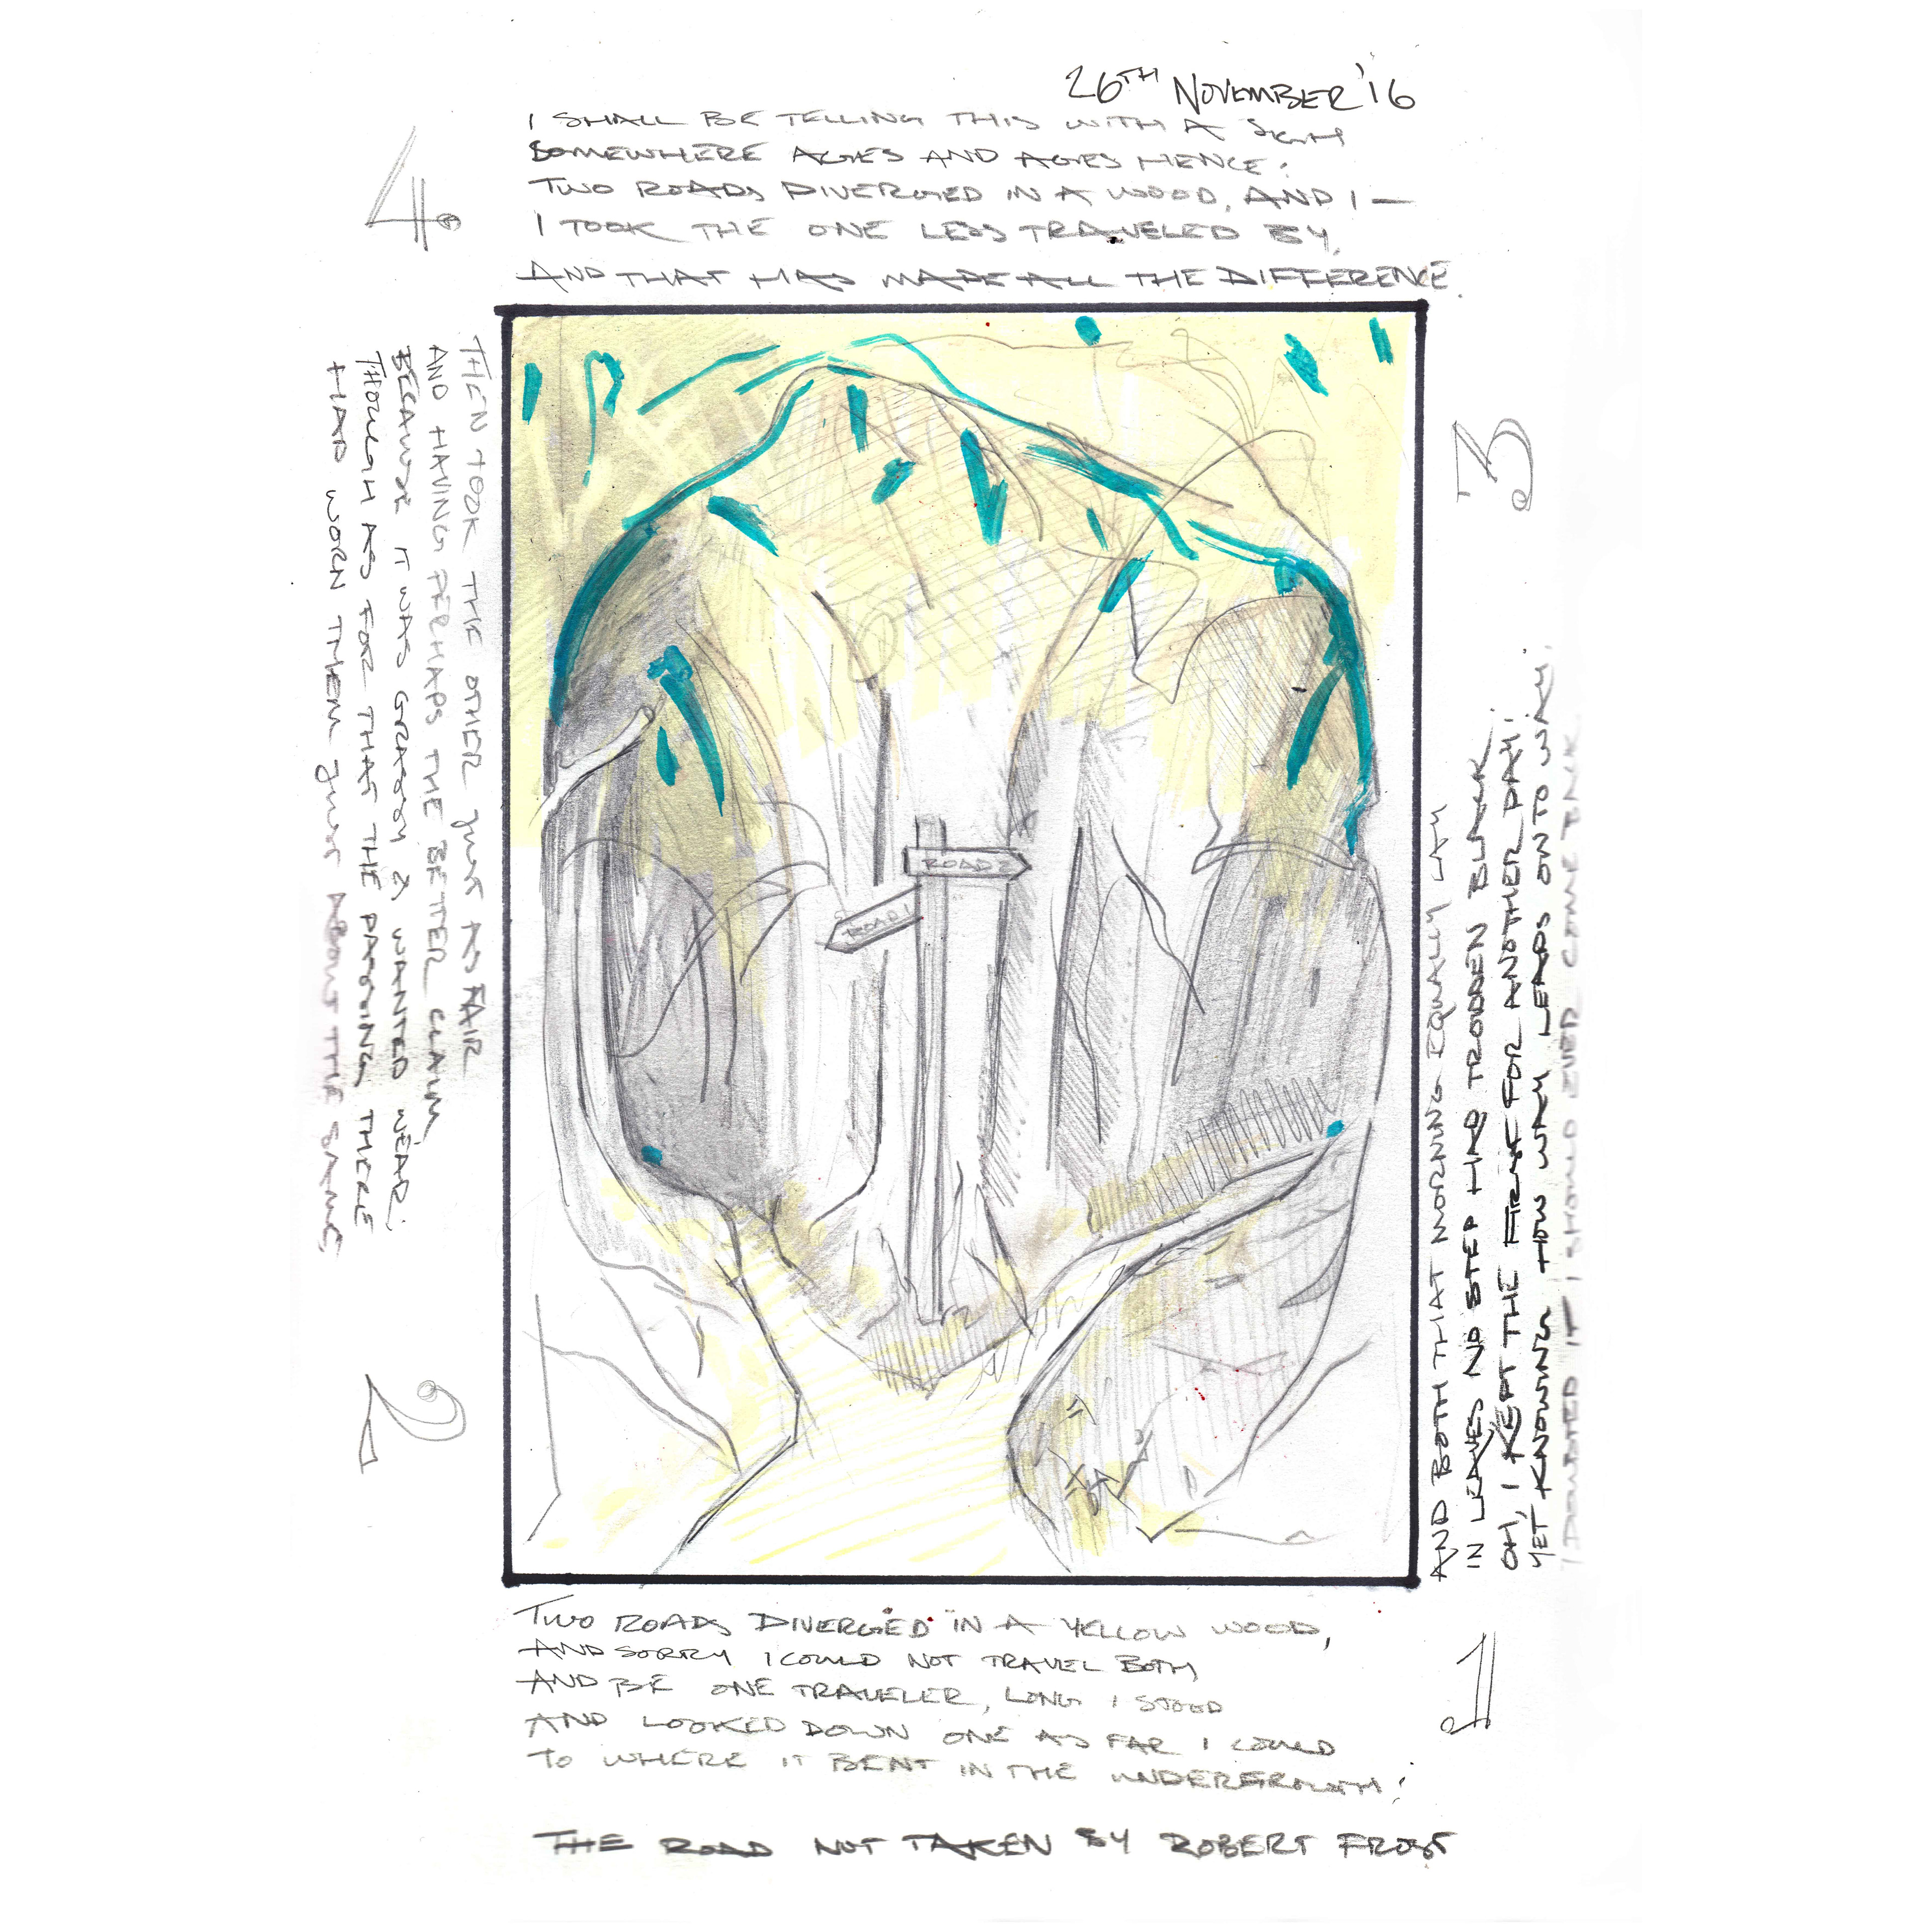 26TH NOVEMBER '16
4.
I SHALL BE TELLING THIS WITH A SIGH
SOMEWHERE AGES AND AGES HENCE:
TWO ROADS DIVERGED IN A WOOD, AND I —
I TOOK THE ONE LESS TRAVELED BY,
AND THAT HAS MADE ALL THE DIFFERENCE.
2
THEN TOOK THE OTHER JUST AS FAIR
AND HAVING PERHAPS THE BETTER CLAIM,
BECAUSE IT WAS GRASSY & WANTED WEAR;
THOUGH AS FOR THAT THE PASSING THERE
HAD WORN THEM JUST ABOUT THE SAME,
ROAD 2
ROAD 1
3
AND BOTH THAT MORNING EQUALLY LAY
IN LEAVES NO STEP HAD TRODDEN BLACK.
OH, I KEPT THE FIRST FOR ANOTHER DAY!
YET KNOWING HOW WAY LEADS ONTO WAY,
I DOUBTED IF I SHOULD EVER COME BACK
1
TWO ROADS DIVERGED IN A YELLOW WOOD,
AND SORRY I COULD NOT TRAVEL BOTH
AND BE ONE TRAVELER, LONG I STOOD
AND LOOKED DOWN ONE AS FAR I COULD
TO WHERE IT BENT IN THE UNDERGROWTH;
THE ROAD NOT TAKEN BY ROBERT FROST